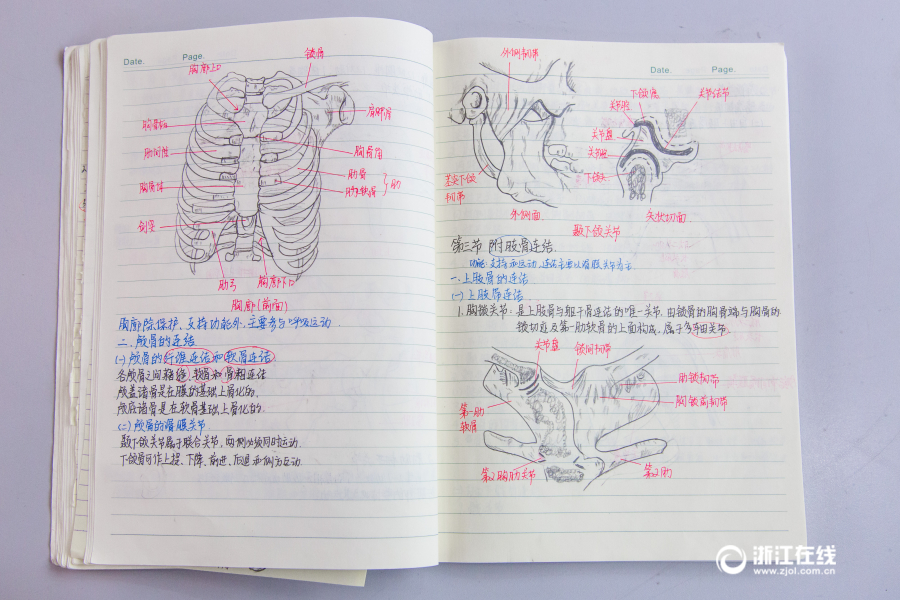 Date. Page.
胸廓上口
锁骨
肩胛骨
胸骨柄
肋间隙
胸骨体
剑突
胸骨角
肋骨
肋软骨
肋
肋弓
胸廓下口
胸廓(前面)
胸廓除保护、支持功能外,主要参与呼吸运动.
二、颅骨的连结
(一)颅骨的纤维连结和软骨连结
各颅骨之间借缝、软骨和骨相连结
颅盖诸骨是在膜的基础上骨化的,
颅底诸骨是在软骨基础上骨化的.
(二)颅骨的滑膜关节
颞下颌关节属于联合关节,两侧必须同时运动.
下颌骨可作上提、下降、前进、后退和侧方运动.
Date. Page.
外侧韧带
茎突下颌韧带
外侧面
下颌窝
关节结节
关节腔
关节盘
关节囊
下颌头
矢状切面
颞下颌关节
第三节 附肢骨连结.
功能:支持和运动,连结主要以滑膜关节为主
一.上肢骨的连结
(一)上肢带连结
1.胸锁关节:是上肢骨与躯干骨连结的唯一关节.由锁骨的胸骨端与胸骨的
锁切迹及第一肋软骨的上面构成,属于多轴关节.
关节盘
锁间韧带
肋锁韧带
胸锁前韧带
第一肋
软骨
第2胸肋关节
第2肋
浙江在线
www.zjol.com.cn